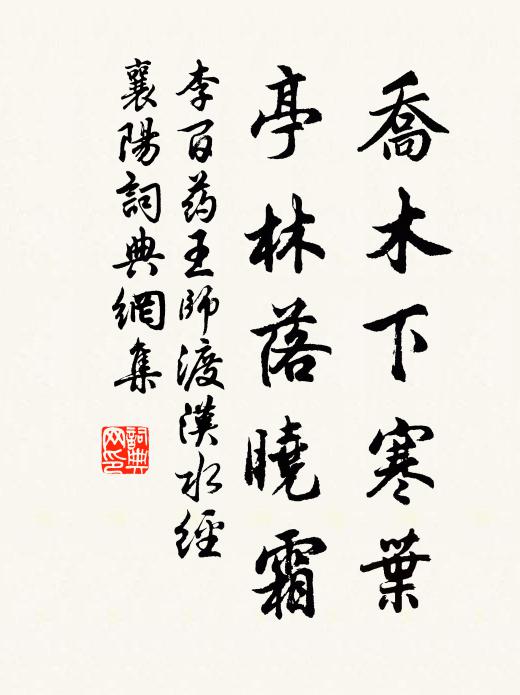 喬木下寒葉
亭林落曉霜
李百药王師渡漢水經
襄陽詞典網集
詞典
网印